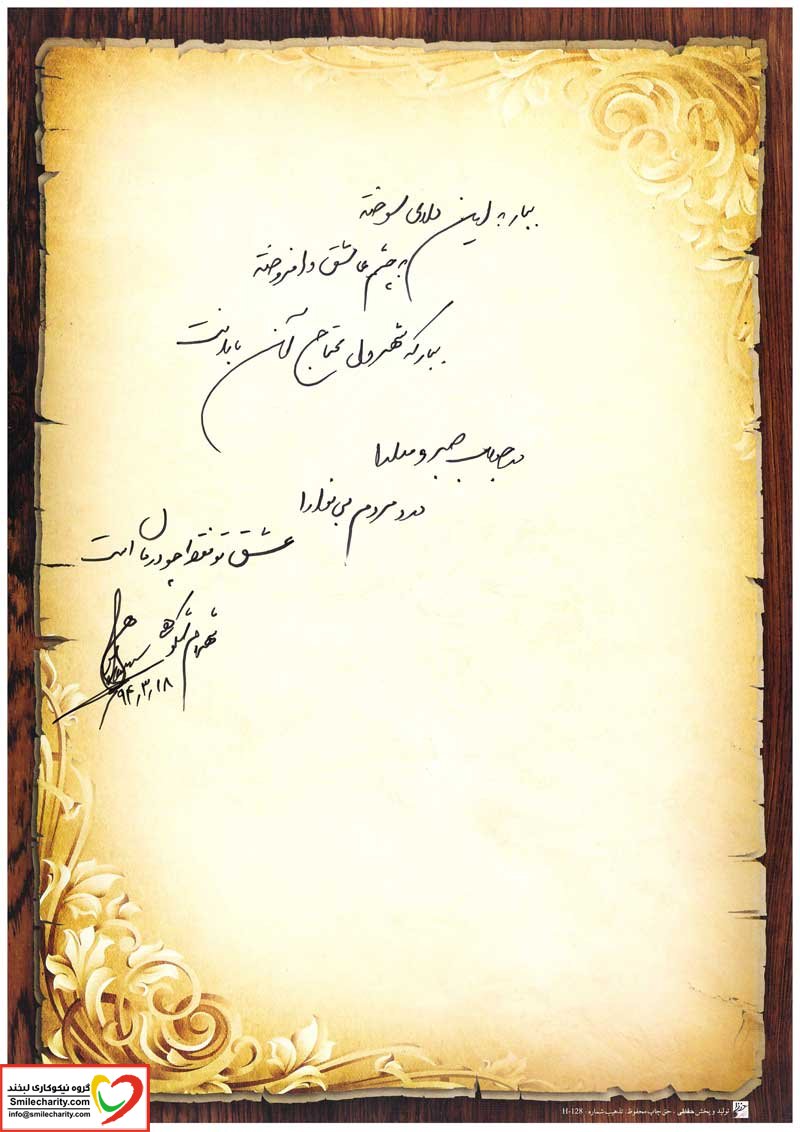 ببار به این دلای سوخته
به چشم عاشق و افروخته
ببار که شهر دل محتاج آن بارانت
صبر و مدارا
درد مردم بی نوا را
عشق تو فقط چو درمان است
شهرام شکوهی
۹۴٫۳٫۱۸
گروه نیکوکاری لبخند
Smilecharity.com
info@smilecharity.com
تولید و پخش حفظی . حق چاپ محفوظ . تذهیب شماره : H-128